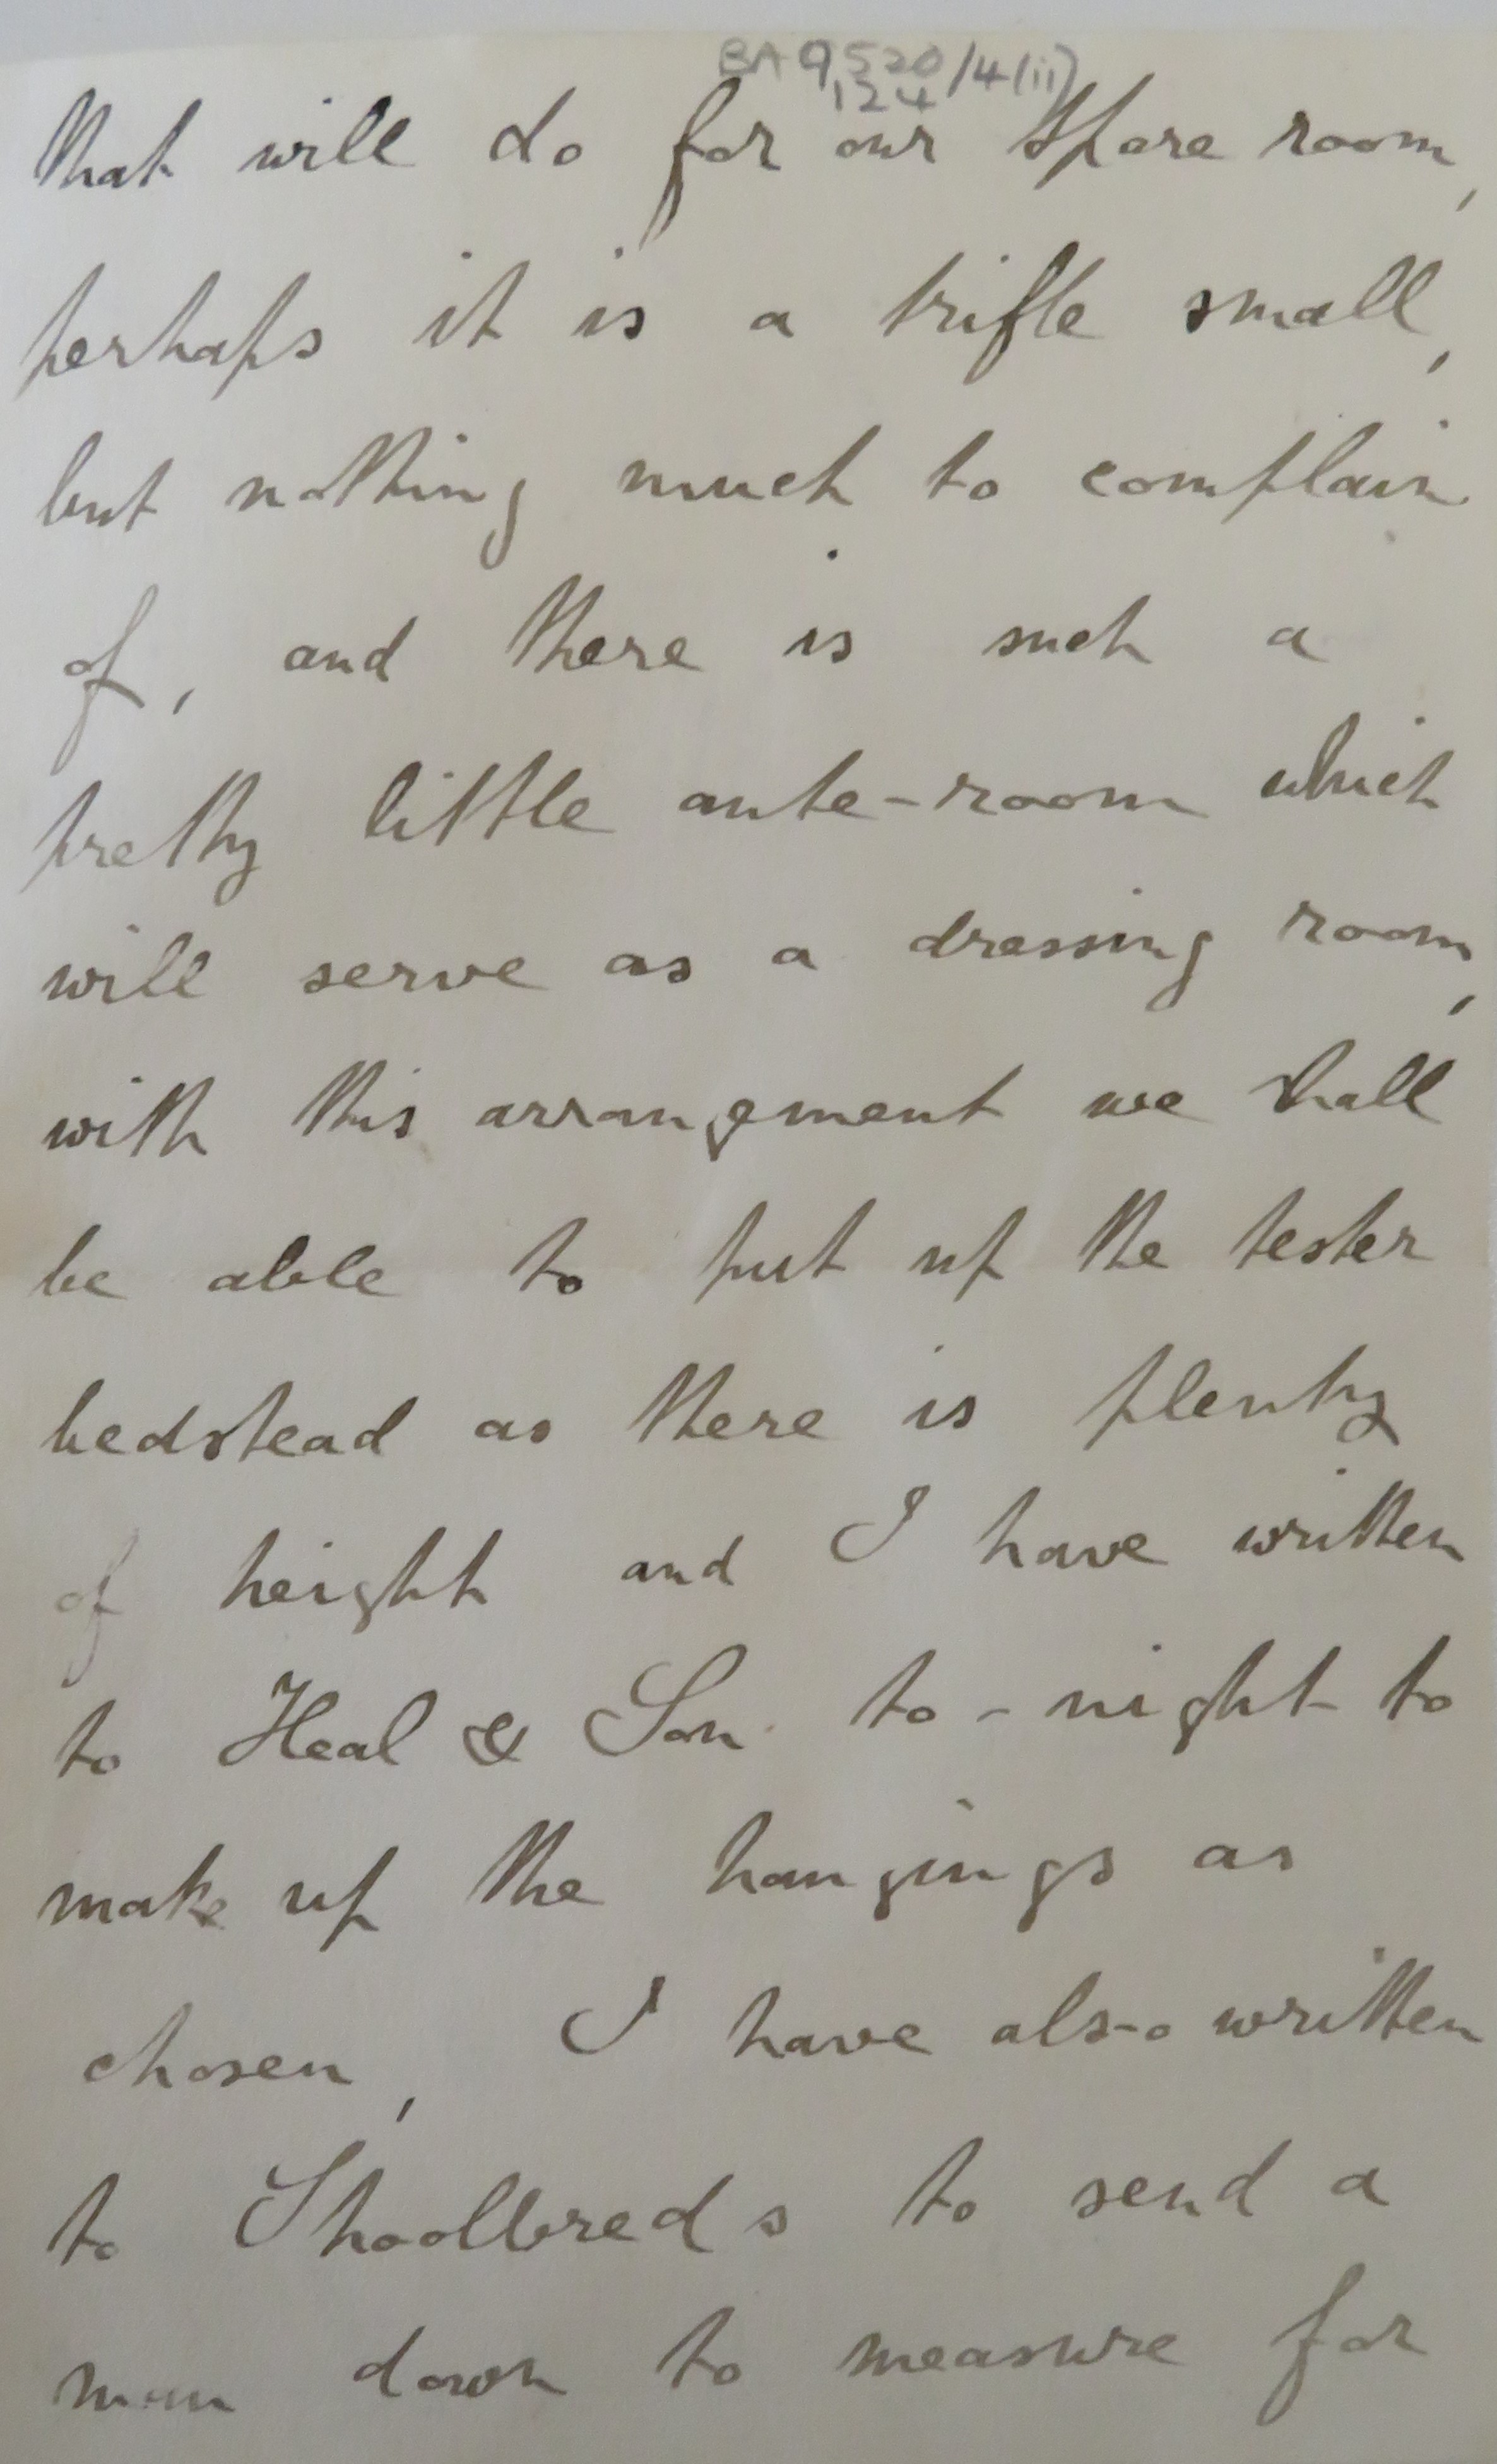 BA 9520/4(ii)
124
that will do for our spare room,
perhaps it is a trifle small,
but nothing much to complain
of, and there is such a
pretty little ante-room which
will serve as a dressing room,
with this arrangement we shall
be able to put up the tester
bedstead as there is plenty
of height and I have written
to Heal & Son to-night to
make up the hangings as
chosen, I have also written
to Shoolbreds to send a
man down to measure for